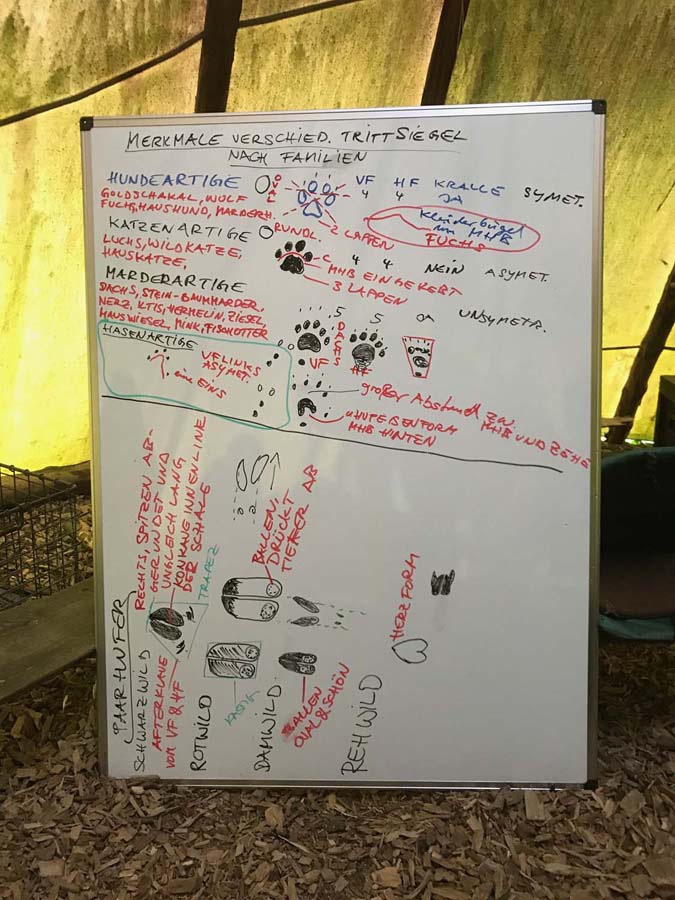 MERKMALE VERSCHIED. TRITTSIEGEL
NACH FAMILIEN
HUNDEARTIGE OVAL VF HF KRALLE SYMET.
4 4 JA
GOLDSCHAKAL, WOLF
FUCHS, HAUSHUND, MARDERH.
2 LAPPEN
Kleiderbügel
im MHB
FUCHS
KATZENARTIGE RUNDL.
4 4 NEIN ASYMET.
LUCHS, WILDKATZE,
HAUSKATZE,
MHB EINGEKERBT
3 LAPPEN
MARDERARTIGE
5 5 JA UNSYMETR.
DACHS, STEIN-BAUMMARDER,
NERZ, ILTIS, HERMELIN, ZIESEL,
HAUSWIESEL, MINK, FISCHOTTER
DACHS
VF HF
HASENARTIGE
VF LINKS
ASYMET.
eine EINS
großer Abstand zw.
MHB UND ZEHE
HUFEISENFORM
MHB HINTEN
PAARHUFER
SCHWARZWILD
RECHTS, SPITZEN AB-
GERUNDET UND
UNGLEICH LANG
KONKAVE INNENLINIE
DER SCHALE
AFTERKLAUE
VOM VF & HF
TRAPEZ
ROTWILD
BALLEN,
DRÜCKT
TIEFER AB
KASTIG
DAMWILD
BALLEN
OVAL & SCHÖN
REHWILD
HERZFORM